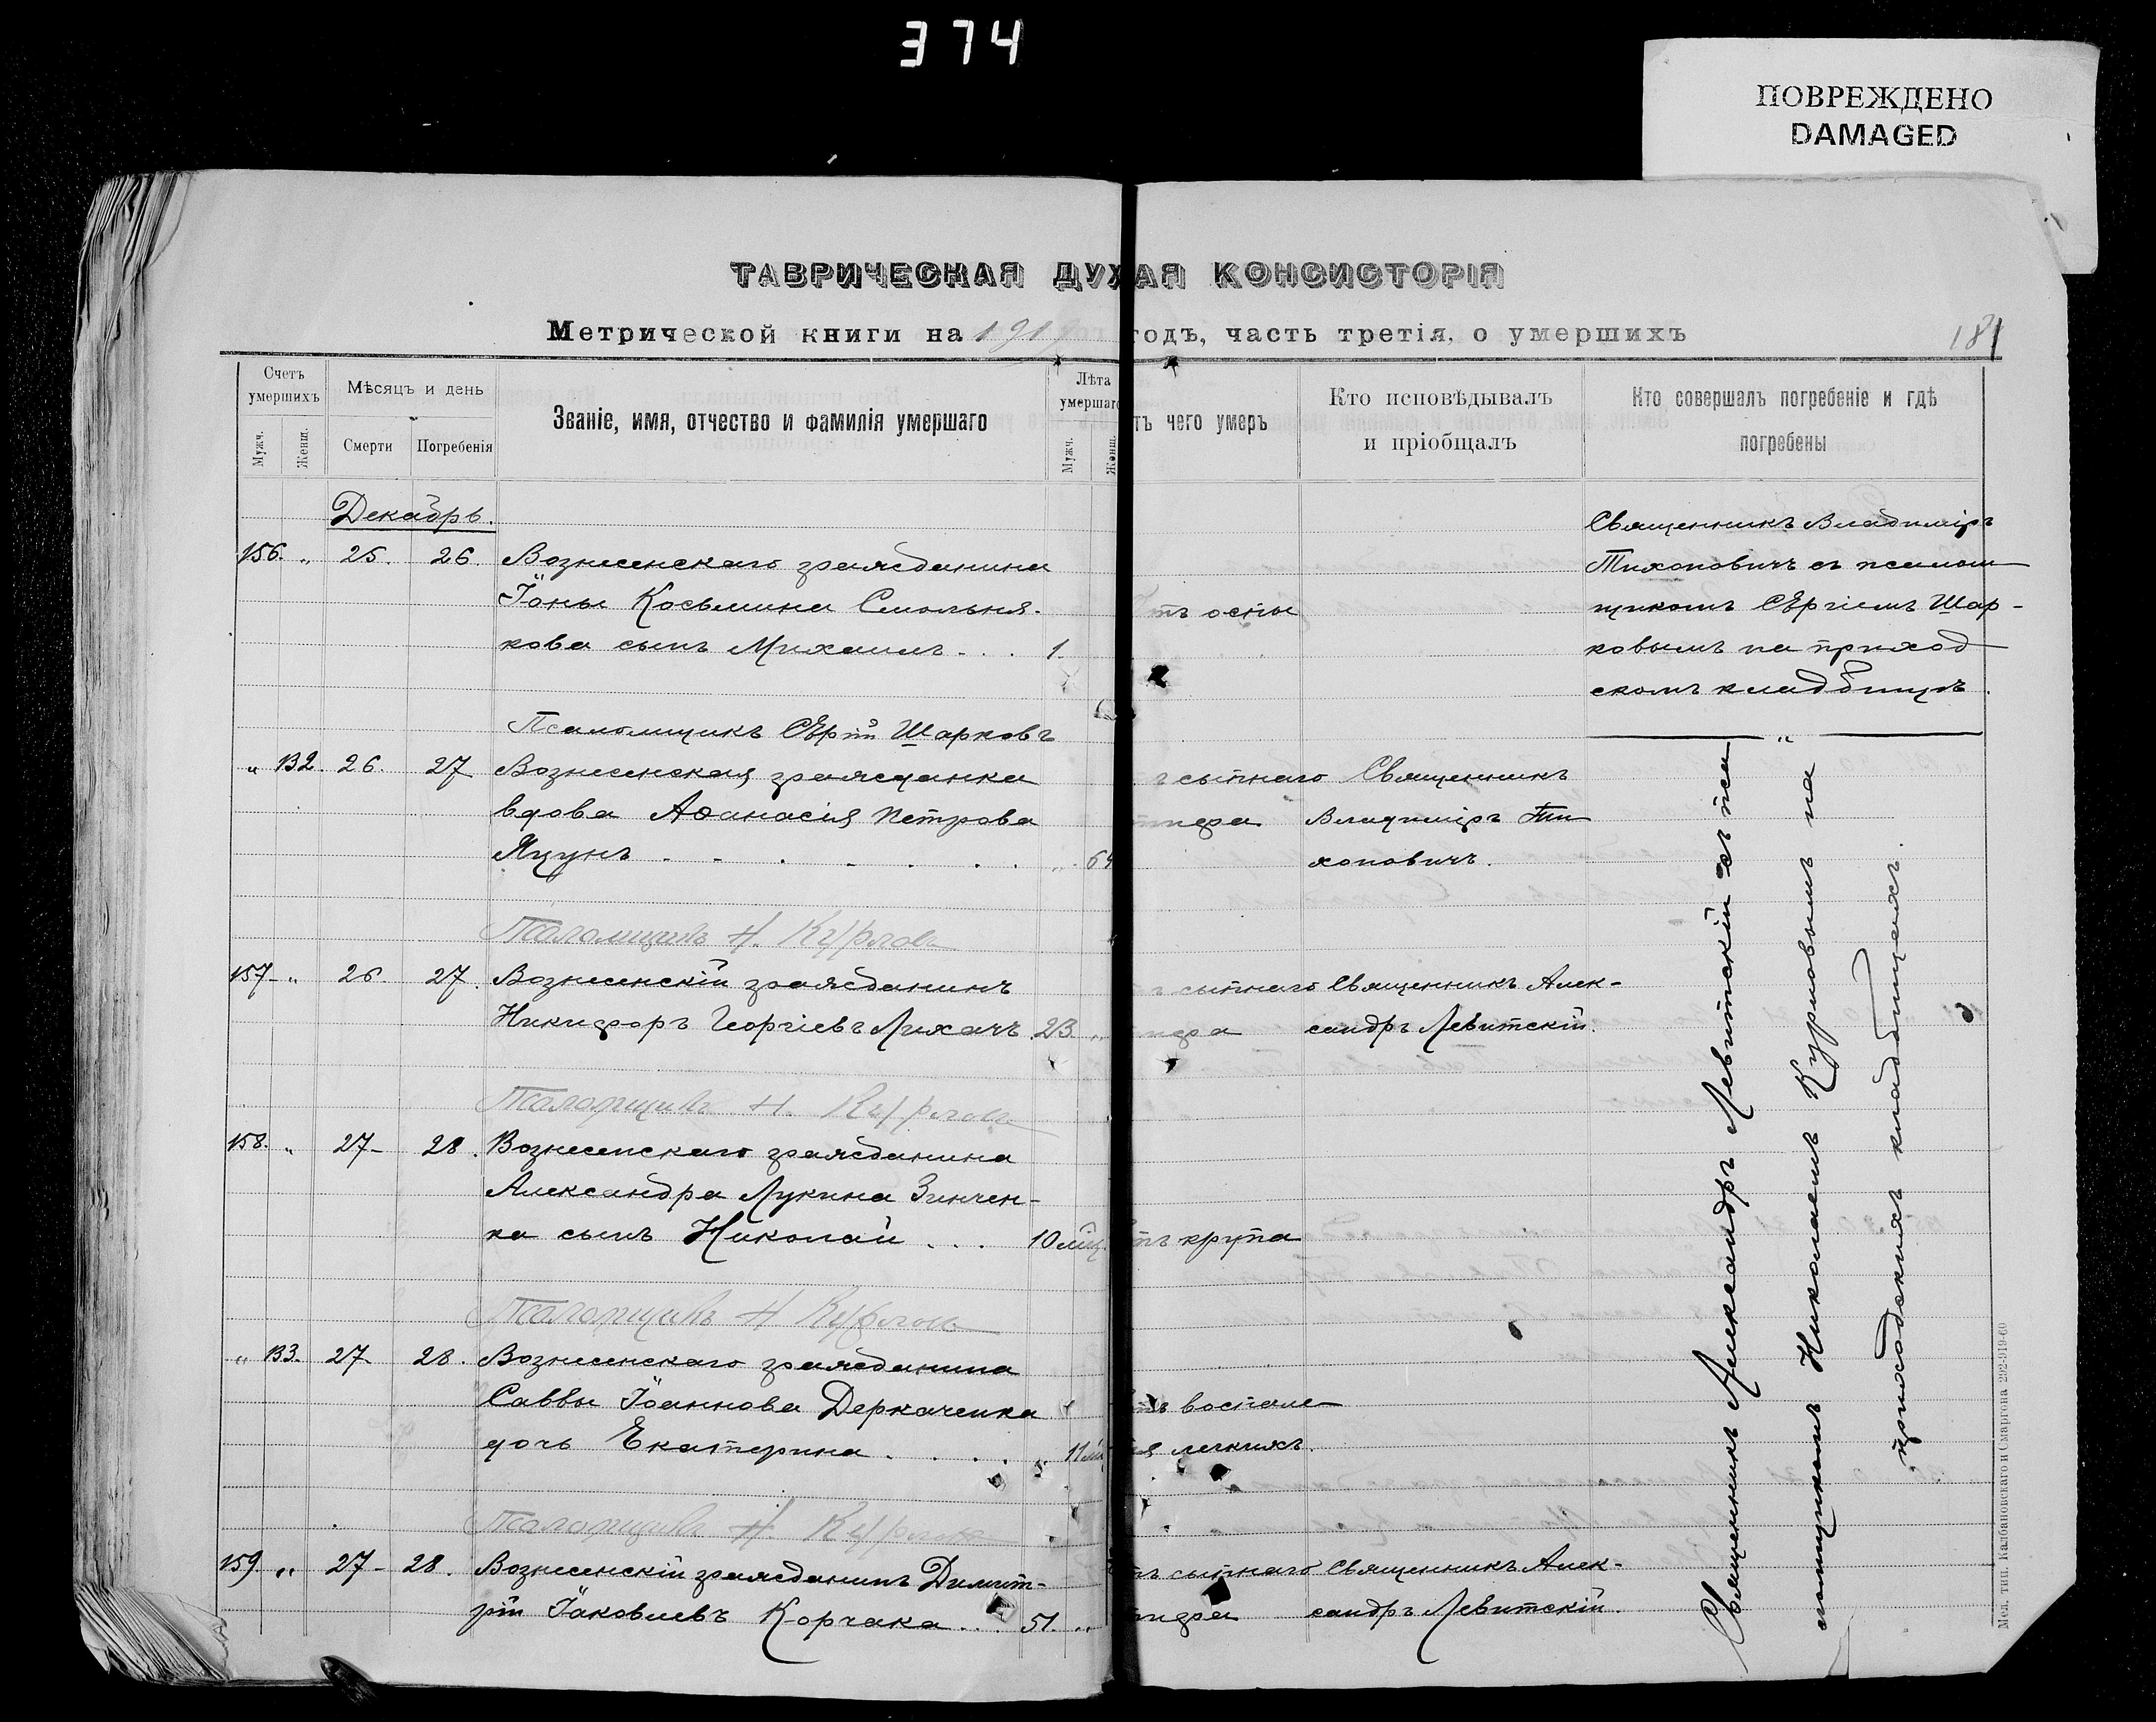 374
ПОВРЕЖДЕНО
DAMAGED
ТАВРИЧЕСКАЯ ДУХ АЯ КОНСИСТОРІЯ
Метрической книги на 191 годъ, часть третія, о умершихъ
181
Счетъ умершихъ
Мѣсяцъ и день
Званіе, имя, отчество и фамилія умершаго
Лѣта умершаго
тъ чего умеръ
Кто исповѣдывалъ и пріобщалъ
Кто совершалъ погребеніе и гдѣ погребены
Мужч. Женщ. Смерти Погребенія Мужч. Женщ.
Декабрь.
156. „ 25. 26. Вознесенскаго гражданина
Іоны Косьмина Смольня-
кова сынъ Михаилъ . . . 1.
тъ оспы
Священникъ Владиміръ
Тихоновичъ съ псалом
щикомъ Сѣргіемъ Шар-
ковымъ на приход
скомъ кладбищѣ.
Псаломщикъ Сѣргій Шарковъ
„ 132. 26. 27 Вознесенская гражданка
вдова Аѳанасія Петрова
Яцунъ . . . . . . . „ 64
ъ сыпнаго
тифа
Священникъ
Владиміръ Ти
хоновичъ.
Псаломщикъ Н. Курловъ
157. „ 26. 27. Вознесенскій гражданинъ
Никифоръ Георгіевъ Лихачъ. 23. „
ъ сыпнаго
тифа
Священникъ Алек-
сандръ Левитскій.
Псаломщикъ Н. Курловъ
158. „ 27- 28. Вознесенскаго гражданина
Александра Лукина Зинчен-
ка сынъ Николай . . . 10 мѣц.
тъ крупа
Псаломщикъ Н Курловъ
„ 133. 27- 28. Вознесенскаго гражданина
Саввы Іоаннова Деркаченка
дочь Екатерина . . . . „ 11 мѣ
тъ воспале
ія легкихъ.
Псаломщикъ Н Курловъ
159 „ 27- 28. Вознесенскій гражданинъ Димит-
рій Іаковлевъ Корчака . . . 51. „
тъ сыпнаго
тифа
Священникъ Алек-
сандръ Левитскій.
„
Священникъ Александръ Левитскій съ пса
ломщикомъ Николаемъ Курловымъ на
приходскихъ кладбищахъ.
Мел. тип. Калбановскаго и Смаргона 292-919-60